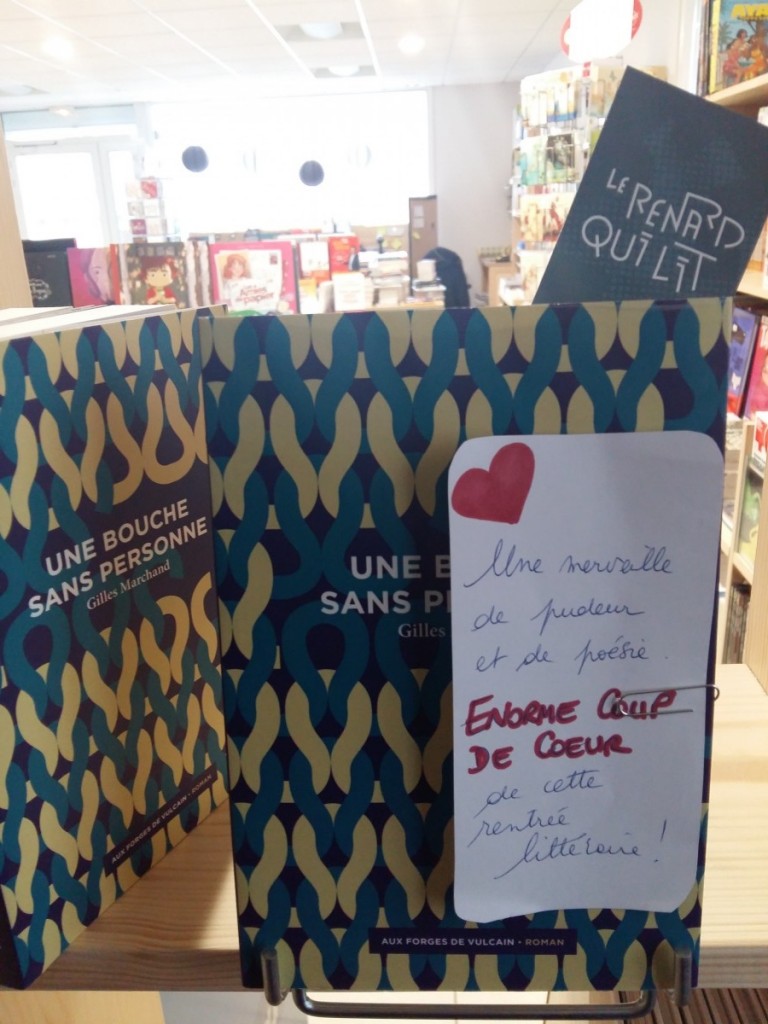 LE RENARD
QUI LIT
UNE BOUCHE
SANS PERSONNE
Gilles Marchand
AUX FORGES DE VULCAIN • ROMAN
UNE
SANS
Gilles
Une merveille
de pudeur
et de poésie.
ENORME COUP
DE COEUR
de cette
rentrée
littéraire !
AUX FORGES DE VULCAIN • ROMAN